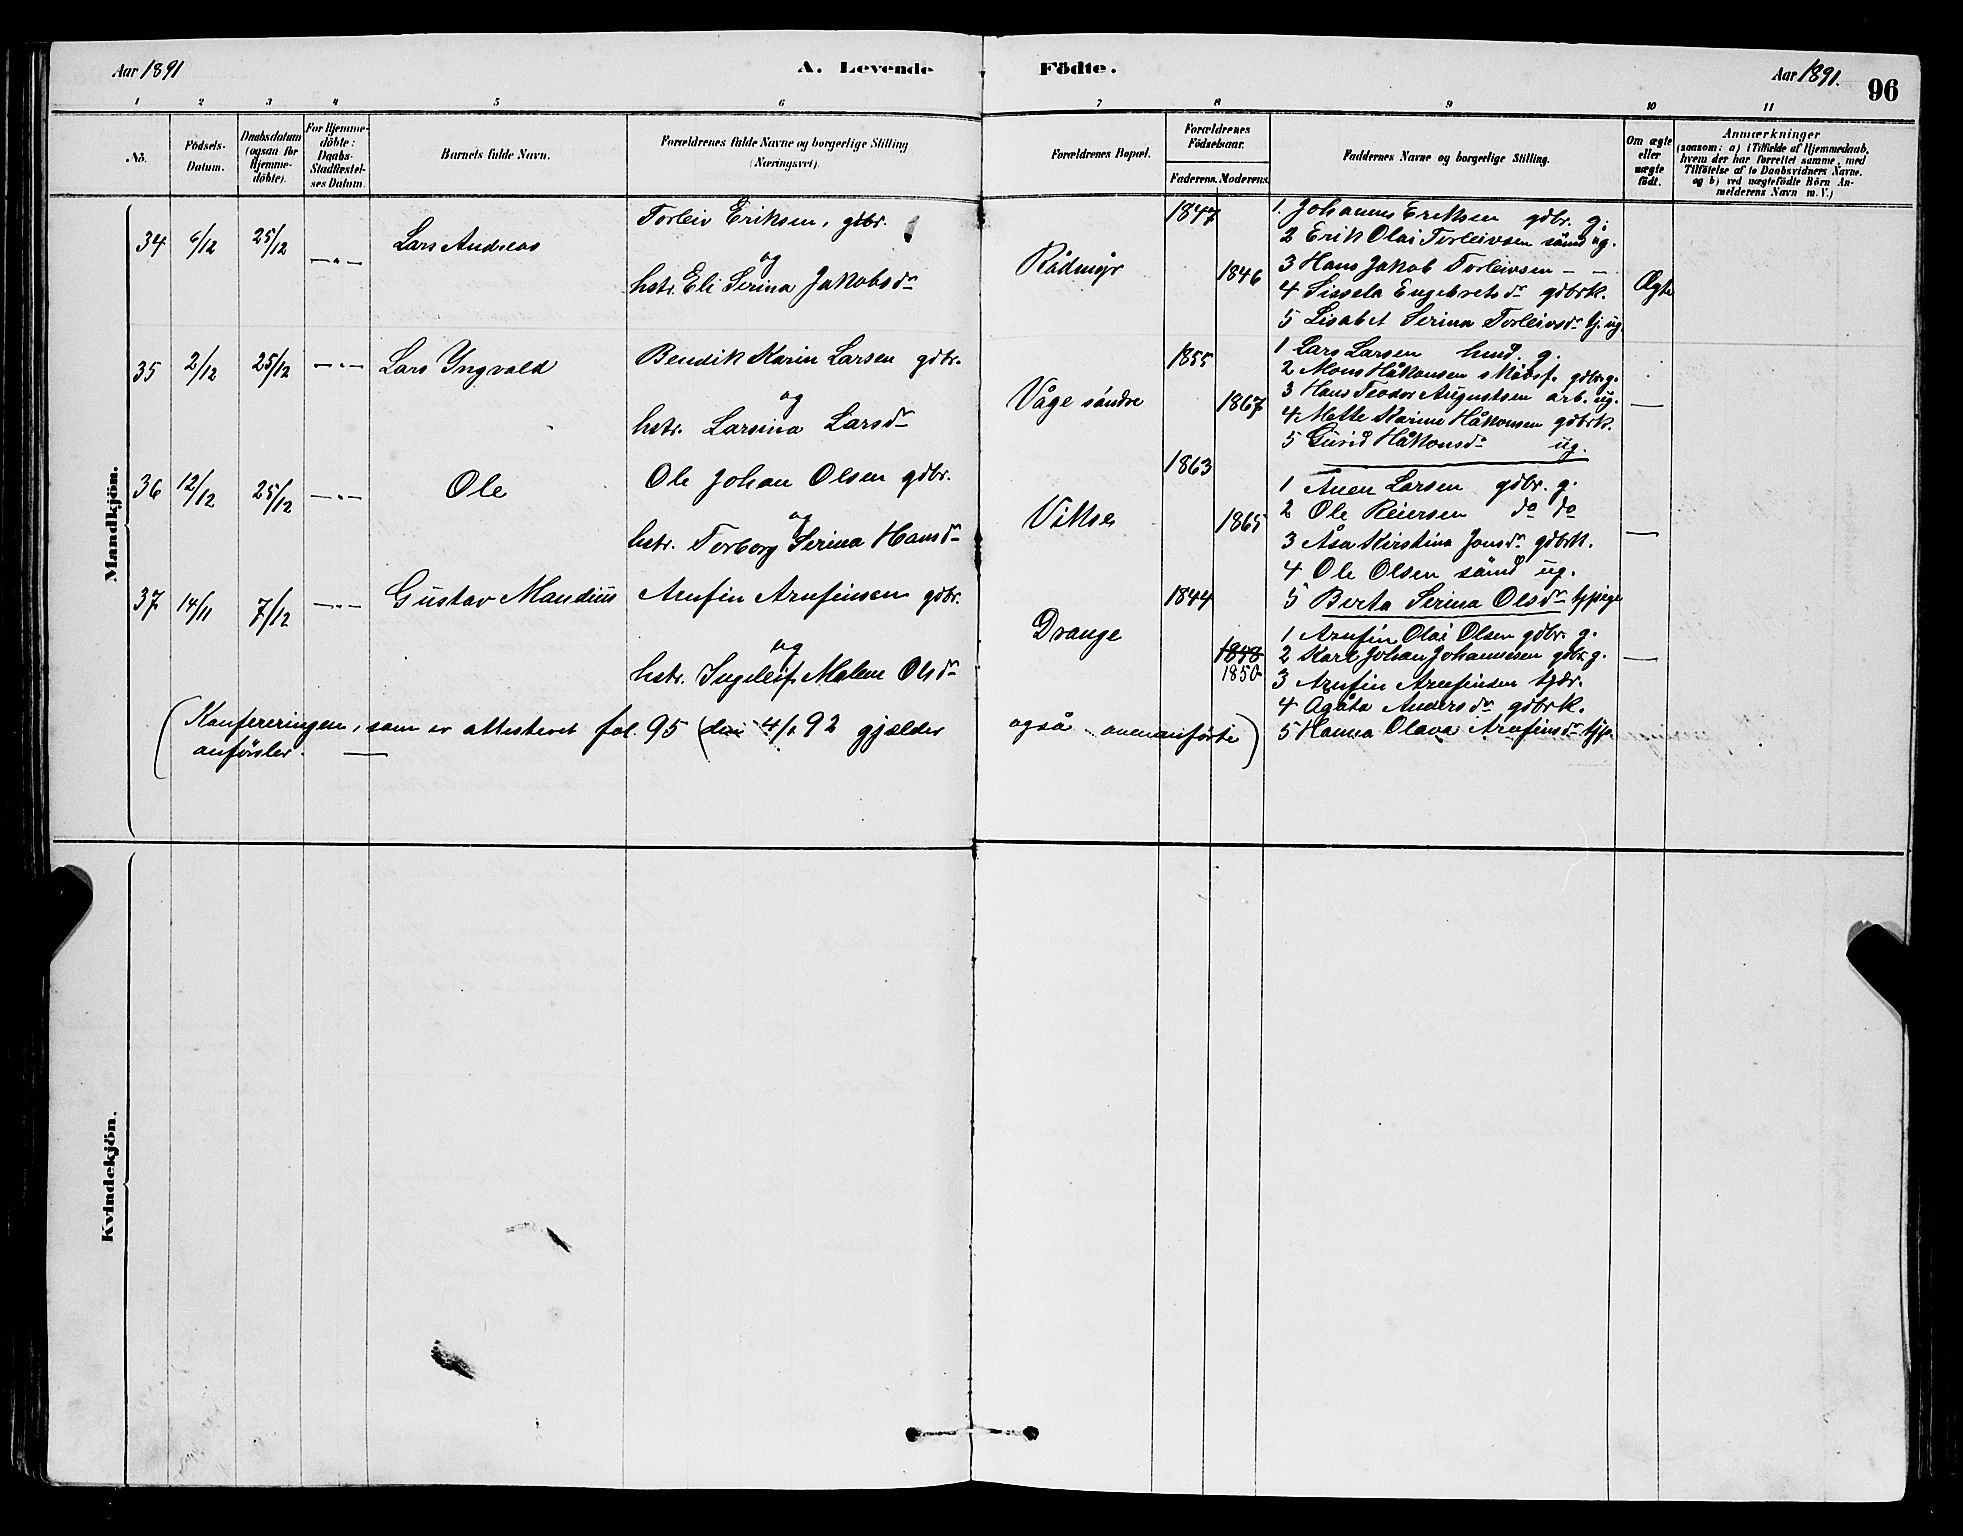 Aar 1891
A. Levende Födte.
Aar 1891.
96
1 2 3 4 5 6 7 8 9 10 11
No.
Födsels-
Datum.
Daabsdatum
(ogsaa for
Hjemme-
döbte).
For Hjemme-
döbte:
Daabs-
Stadfæstel-
ses Datum.
Barnets fulde Navn.
Forældrenes fulde Navne og borgerlige Stilling
(Næringsvei).
Forældrenes Bopæl.
Forældrenes
Födselsaar.
Faderens. Moderens.
Faddernes Navne og borgerlige Stilling.
Om ægte
eller
uægte
födt.
Anmærkninger
(saasom: a) i Tilfælde af Hjemmedaab,
hvem der har forrettet samme, med
Tilföielse af to Daabsvidners Navne,
og b) ved uægtefödte Börn An-
melderens Navn m. V.)
Mandkjön.
34 6/12 25/12 —„— Lars Andreas
Torleiv Eriksen, gdbr.
og
hstr. Eli Serina Jakobsdr
Rådmyr
1847
1846
1. Johannes Eriksen gdbr. g.
2 Erik Olai Torleivsen sömd ug.
3 Hans Jakob Torleivsen — —
4 Sissela Engebretsdr gdbrk.
5 Lisabet Serina Torleivsdr tj. ug.
Ægte
35 2/12 25/12 —„— Lars Yngvald
Bendik Karin Larsen gdbr.
og
hstr. Larsina Larsdr
Våge söndre
1855
1867
1 Lars Larsen husd. g.
2 Mons Håkonsen gdbr. g.
3 Hans Teodor Augustsen arb. ug.
4 Mette Karine Håkonsen gdbrk.
5 Gurid Håkonsdr ug.
—
36 12/12 25/12 —„— Ole
Ole Johan Olsen gdbr.
og
hstr. Torborg Serina Hansdr
Vikse
1863
1865
1 Anen Larsen gdbr. g.
2 Ole Reiersen do do
3 Åsa Kirstina Jonsdr gdbrk.
4 Ole Olsen sömd ug.
5 Berta Serina Olsdr tjpige
—
37 14/11 7/12 —„— Gustav Mandius
Arnfin Arnfinsen gdbr.
og
hstr. Ingeleif Malene Olsdr
Drange
1844
1858
1850
1 Arnfin Olai Olsen gdbr. g.
2 Karl Johan Johannesen gdbr. g.
3 Arnfin Arnfinsen tjdr.
4 Agåta Andersdr gdbrk.
5 Hanna Olava Arnfinsdr tjp.
—
(Konfereringen, som er attesteret fol. 95 (den 4/1 92 gjælder også ovenanførte)
anförsler. —
Kvindekjön.